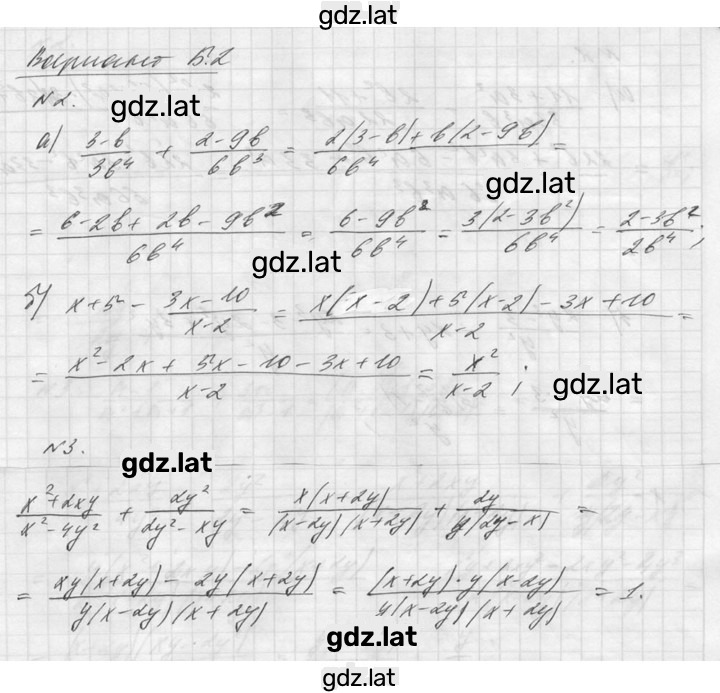 gdz.lat
Вариант Б.2
N2.
gdz.lat
а) (3-b)/(3b^4) + (2-9b)/(6b^3) = (2(3-b)+b(2-9b))/(6b^4) =
gdz.lat
= (6-2b+2b-9b^2)/(6b^4) = (6-9b^2)/(6b^4) = (3(2-3b^2))/(6b^4) = (2-3b^2)/(2b^4);
gdz.lat
б) x+5 - (3x-10)/(x-2) = (x(x-2)+5(x-2)-3x+10)/(x-2) =
= (x^2-2x+5x-10-3x+10)/(x-2) = x^2/(x-2);
gdz.lat
N3.
gdz.lat
(x^2+2xy)/(x^2-4y^2) + (2y^2)/(2y^2-xy) = (x(x+2y))/((x-2y)(x+2y)) + (2y)/(y(2y-x)) =
= (xy(x+2y)-2y(x+2y))/(y(x-2y)(x+2y)) = ((x+2y)·y(x-2y))/(y(x-2y)(x+2y)) = 1.
gdz.lat
gdz.lat